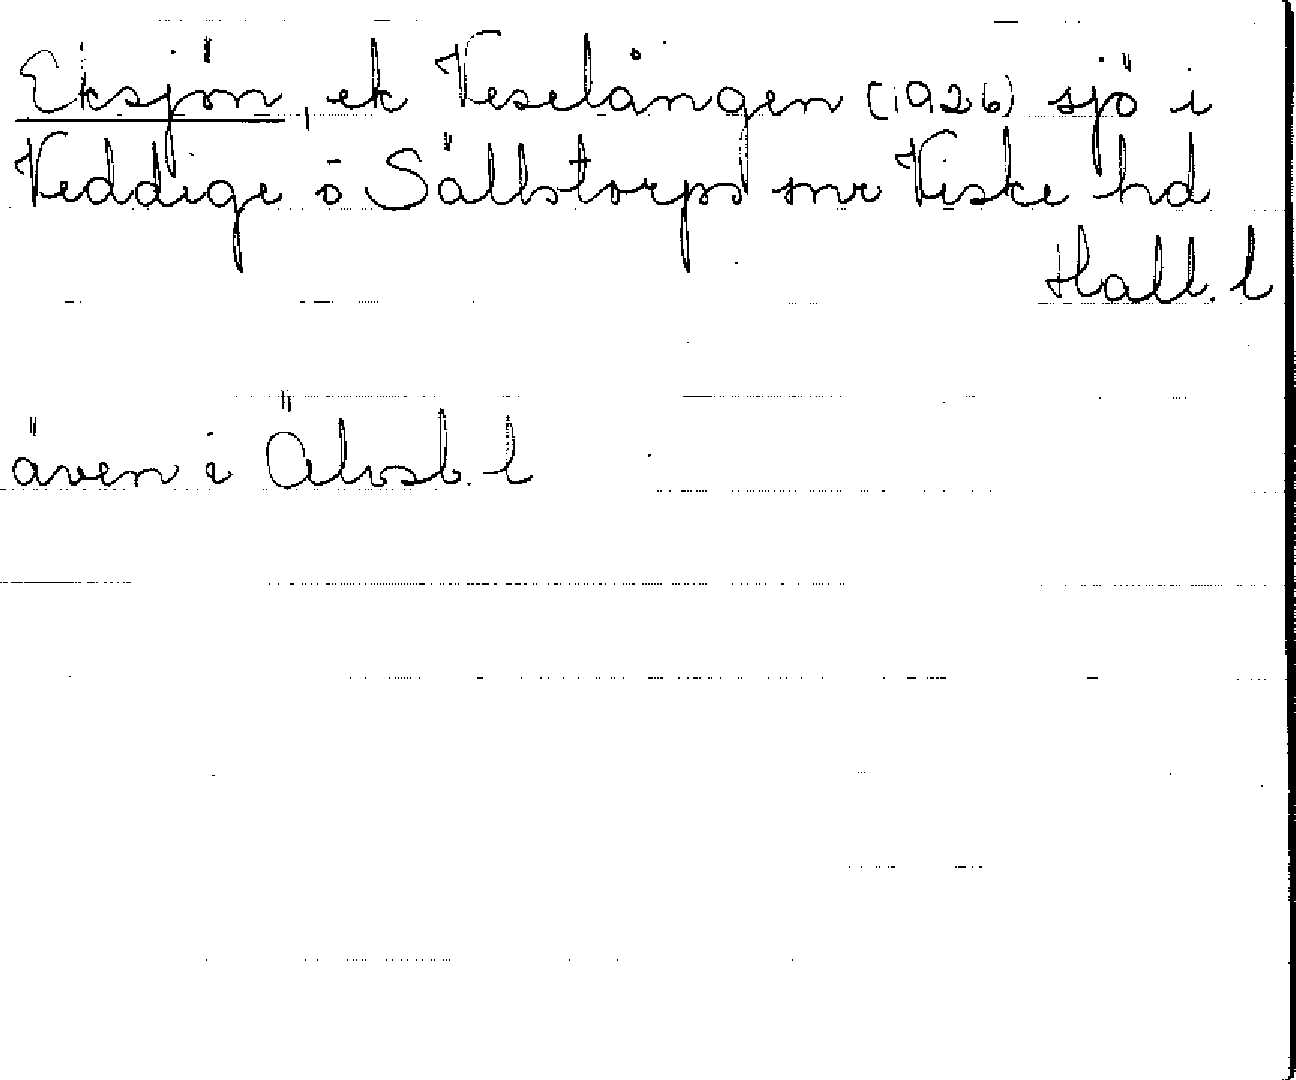 Eksjön, ek Veselången (1926) sjö i
Veddige o Sällstorps snr Viske hd
Hall. l
även i Älvsb. l